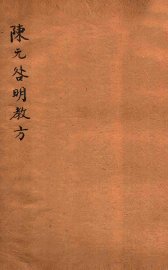 陳元咎明教方